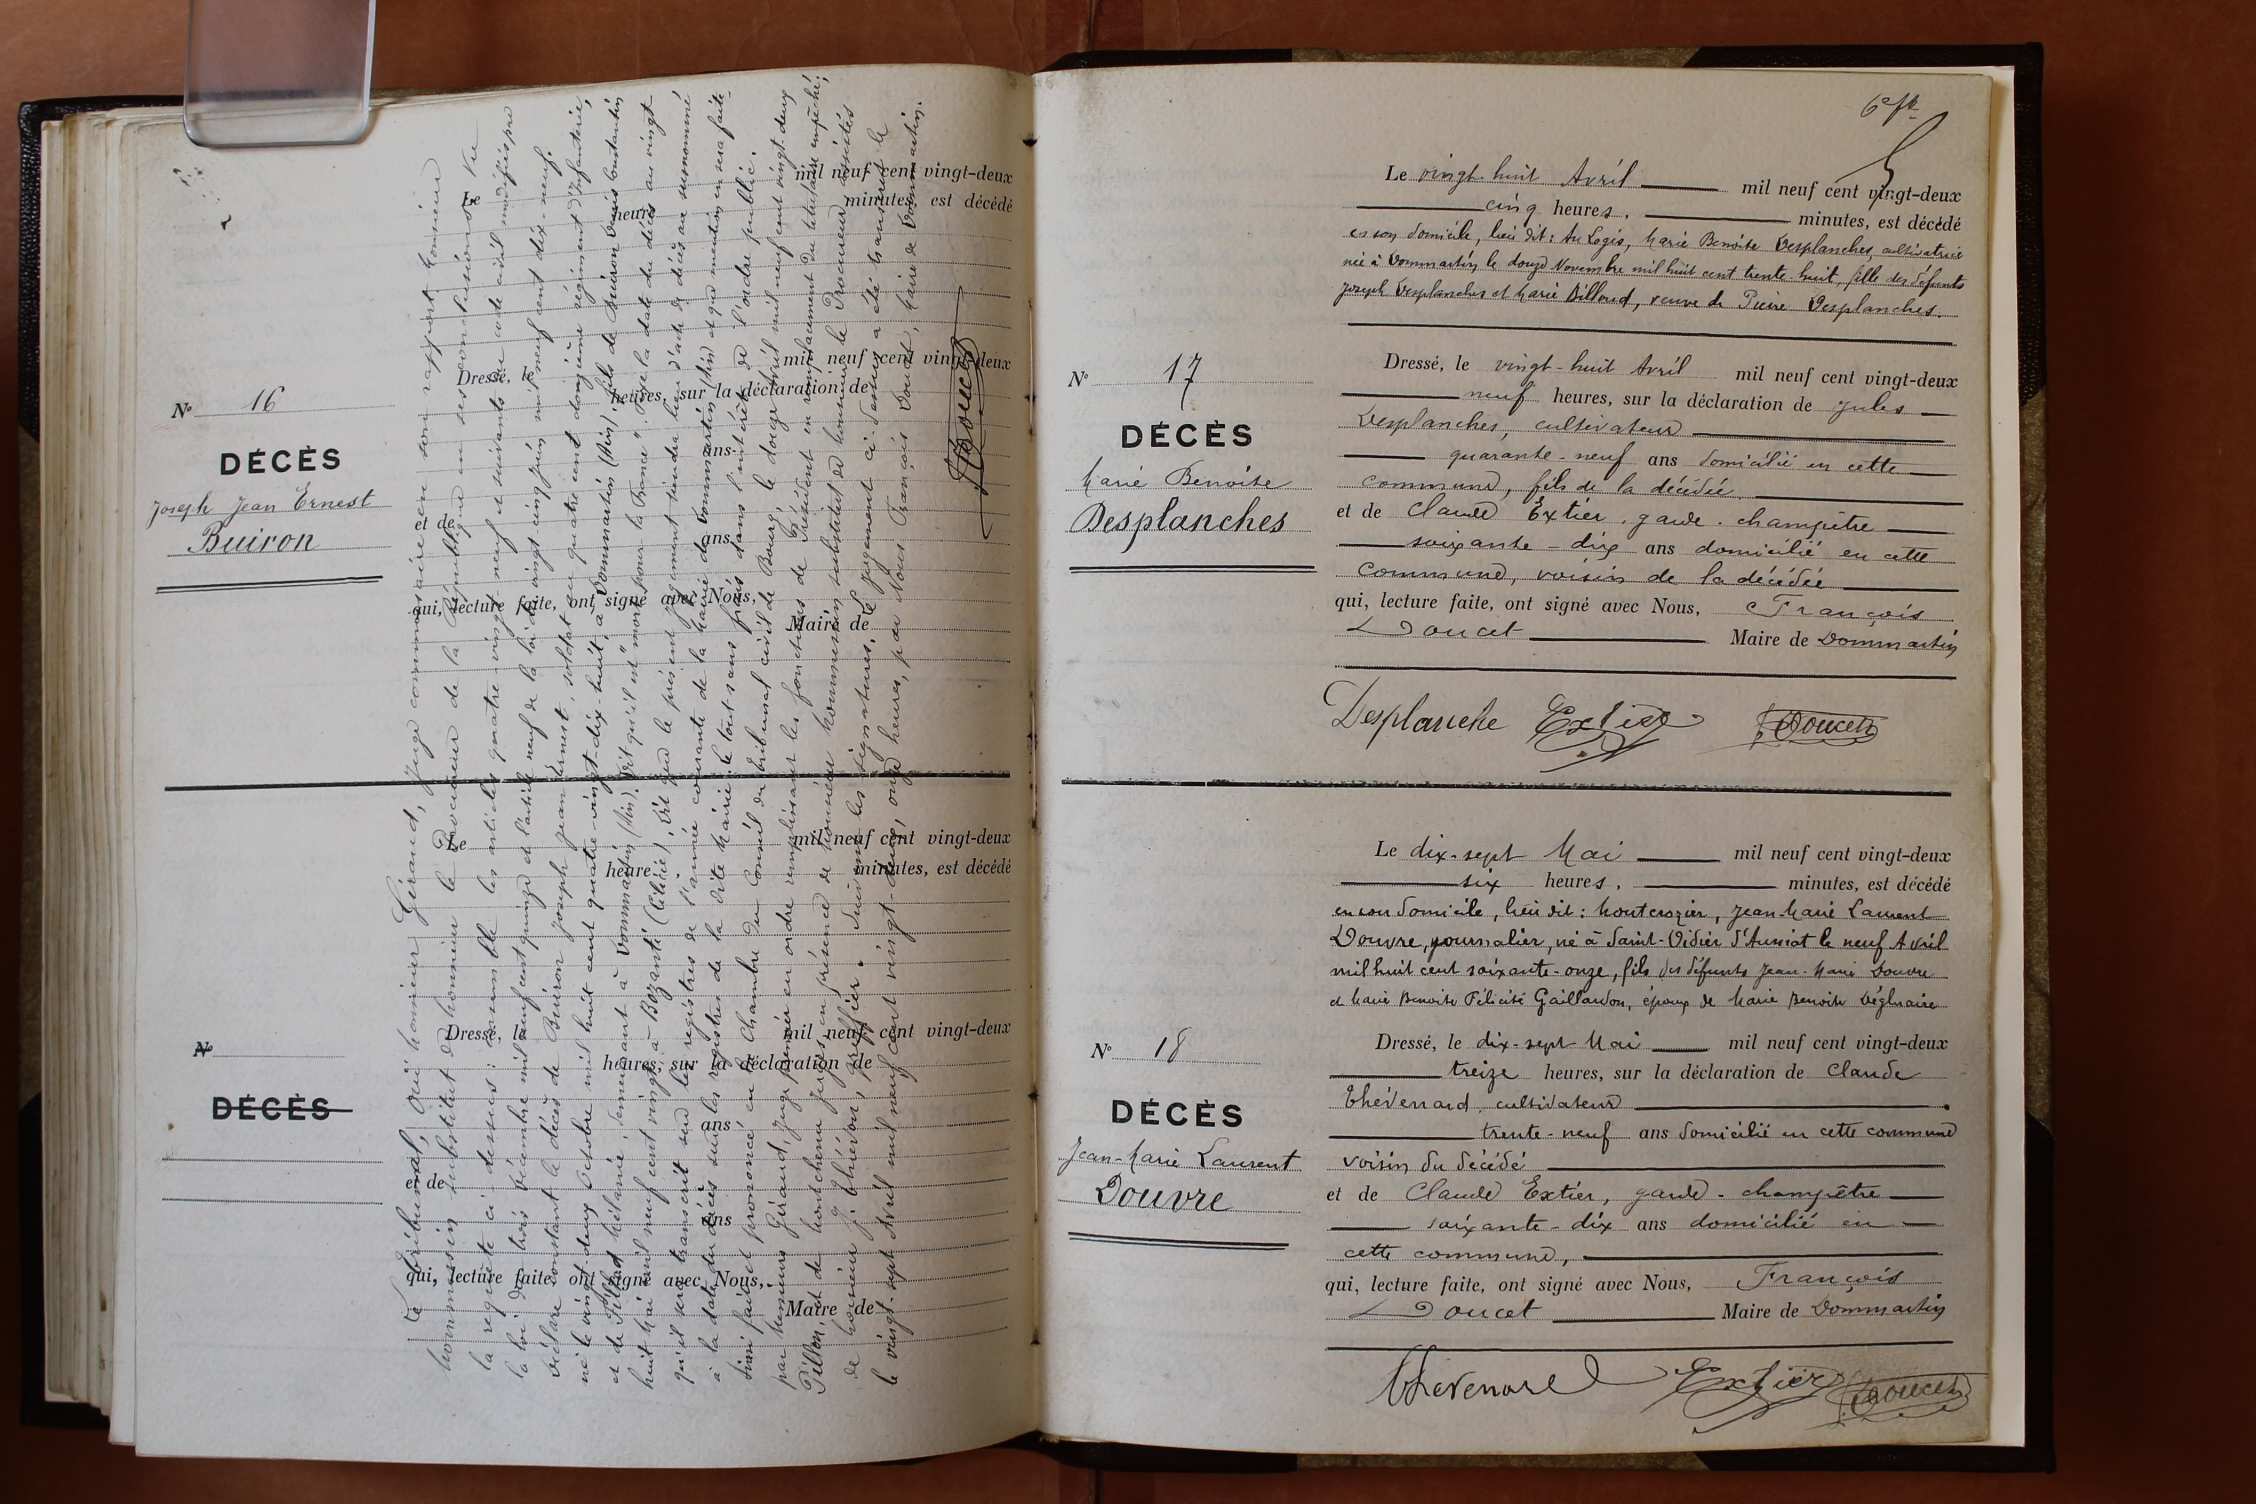 N° 16
DÉCÈS
Joseph Jean Ernest
Buiron
Le mil neuf cent vingt-deux
heure minutes, est décédé
Dressé, le mil neuf cent vingt-deux
heures, sur la déclaration de
ans
et de
ans
qui, lecture faite, ont signé avec Nous,
Maire de
N°
DÉCÈS
Le mil neuf cent vingt-deux
heure minutes, est décédé
Dressé, le mil neuf cent vingt-deux
heures, sur la déclaration de
ans
et de
ans
qui, lecture faite, ont signé avec Nous,
Maire de
Le Tribunal, Ouï Monsieur Giraud, juge commissaire en son rapport, Monsieur
Hommessin substitut de Monsieur le Procureur de la République en ses conclusions. Vu
la requête ci-dessus: ensemble les articles quatre-vingt-neuf et suivants du code civil modifiés par
la loi du trois Décembre mil neuf cent quinze et l'article neuf de la loi du vingt cinq Juin mil neuf cent dix-neuf.
Déclare constant le décès de Buiron Joseph Jean Ernest, soldat au quatre cent douzième régiment d'Infanterie,
né le vingt-deux Octobre mil huit cent quatre-vingt-dix-huit, à Dommartin (Ain), fils de Buiron Denis Constantin
et de Pillon Mélanie, demeurant à Dommartin (Ain). Dit qu'il est "mort pour la France". Fixe la date du décès au vingt
huit Mai mil neuf cent vingt, à Bozanti (Cilicie), Dit que le présent jugement tiendra lieu d'acte de décès au susnommé
qu'il sera transcrit sur les registres de l'année courante de la Mairie de Dommartin (Ain) et que mention en sera faite
à la date du décès sur les registres de la dite Mairie: le tout sans frais dans l'intérêt de l'ordre public.
Ainsi fait et prononcé en la Chambre du Conseil du tribunal civil de Bourg, le douze Avril mil neuf cent vingt-deux
par Messieurs Giraud, juge premier en ordre remplissant les fonctions de Président en remplacement du titulaire empêché,
Pillon, et de Montchenu juges, en présence de Monsieur Hommessin substitut de Monsieur le Procureur assistés
de Monsieur J. Thiévon, greffier. Suivent les signatures. Le jugement ci-dessus a été transcrit le
le vingt-sept Avril mil neuf cent vingt-deux, onze heures, par Nous François Doucet, Maire de Dommartin.
Doucet
N° 17
DÉCÈS
Marie Benoite
Desplanches
Le vingt-huit Avril mil neuf cent vingt-deux
cinq heures, minutes, est décédé
en son domicile, lieu dit: Au Logis, Marie Benoîte Desplanches, cultivatrice
née à Dommartin le douze Novembre mil huit cent trente-huit, fille des défunts
Joseph Desplanches et Marie Billoud, veuve de Pierre Desplanches.
Dressé, le vingt-huit Avril mil neuf cent vingt-deux
neuf heures, sur la déclaration de Jules
Desplanches, cultivateur
quarante-neuf ans domicilié en cette
commune, fils de la décédée.
et de Claude Extier, garde-champêtre
soixante-dix ans domicilié en cette
commune, voisin de la décédée
qui, lecture faite, ont signé avec Nous, François
Doucet Maire de Dommartin
Desplanche Extier Doucet
N° 18
DÉCÈS
Jean-Marie Laurent
Douvre
Le dix-sept Mai mil neuf cent vingt-deux
six heures, minutes, est décédé
en son domicile, lieu dit: Montcrozier, Jean-Marie Laurent
Douvre, journalier, né à Saint-Didier d'Aussiat le neuf Avril
mil huit cent soixante-onze, fils des défunts Jean-Marie Douvre
et Marie Benoite Félicité Gaillardon, époux de Marie Benoite Végluaire
Dressé, le dix-sept Mai mil neuf cent vingt-deux
treize heures, sur la déclaration de Claude
Thévenard, cultivateur
trente-neuf ans domicilié en cette commune
voisin du décédé
et de Claude Extier, garde-champêtre
soixante-dix ans domicilié en
cette commune,
qui, lecture faite, ont signé avec Nous, François
Doucet Maire de Dommartin
Thevenard Extier Doucet